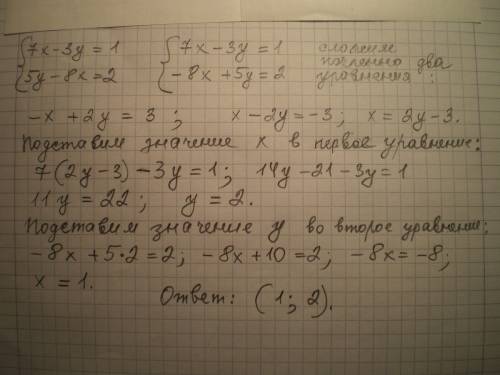 {7x-3y=1 {7x-3y=1 сложим
{5y-8x=2 {-8x+5y=2 почленно два уравнения:
-x+2y=3; x-2y=-3; x=2y-3.
Подставим значение x в первое уравнение:
7(2y-3)-3y=1; 14y-21-3y=1
11y=22; y=2.
Подставим значение y во второе уравнение:
-8x+5·2=2; -8x+10=2; -8x=-8;
x=1.
Ответ: (1; 2).